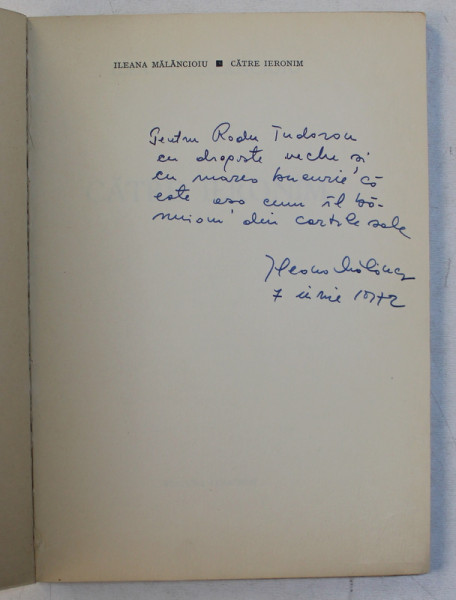 ILEANA MĂLĂNCIOIU ■ CĂTRE IERONIM
Pentru Radu Tudoran
cu dragoste veche și
cu marea bucurie că
este așa cum îl bă-
nuiam din cărțile sale
Ileana Mălănc
7 iunie 1972